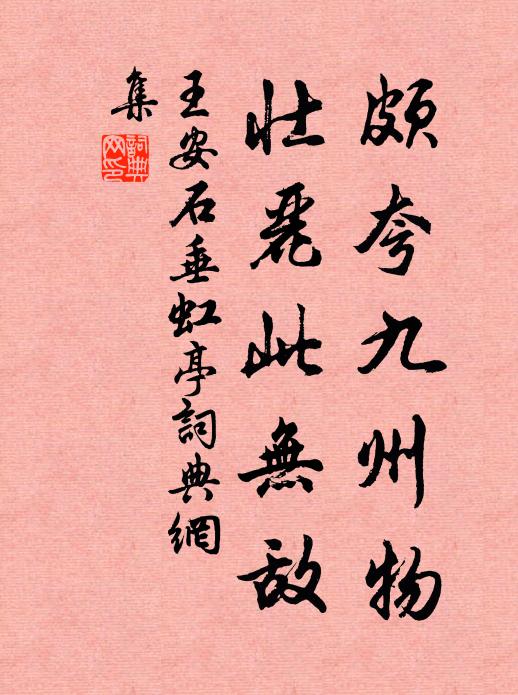 頗夸九州物
壯麗此無敌
王安石垂虹亭詞典網
集
詞典
网印